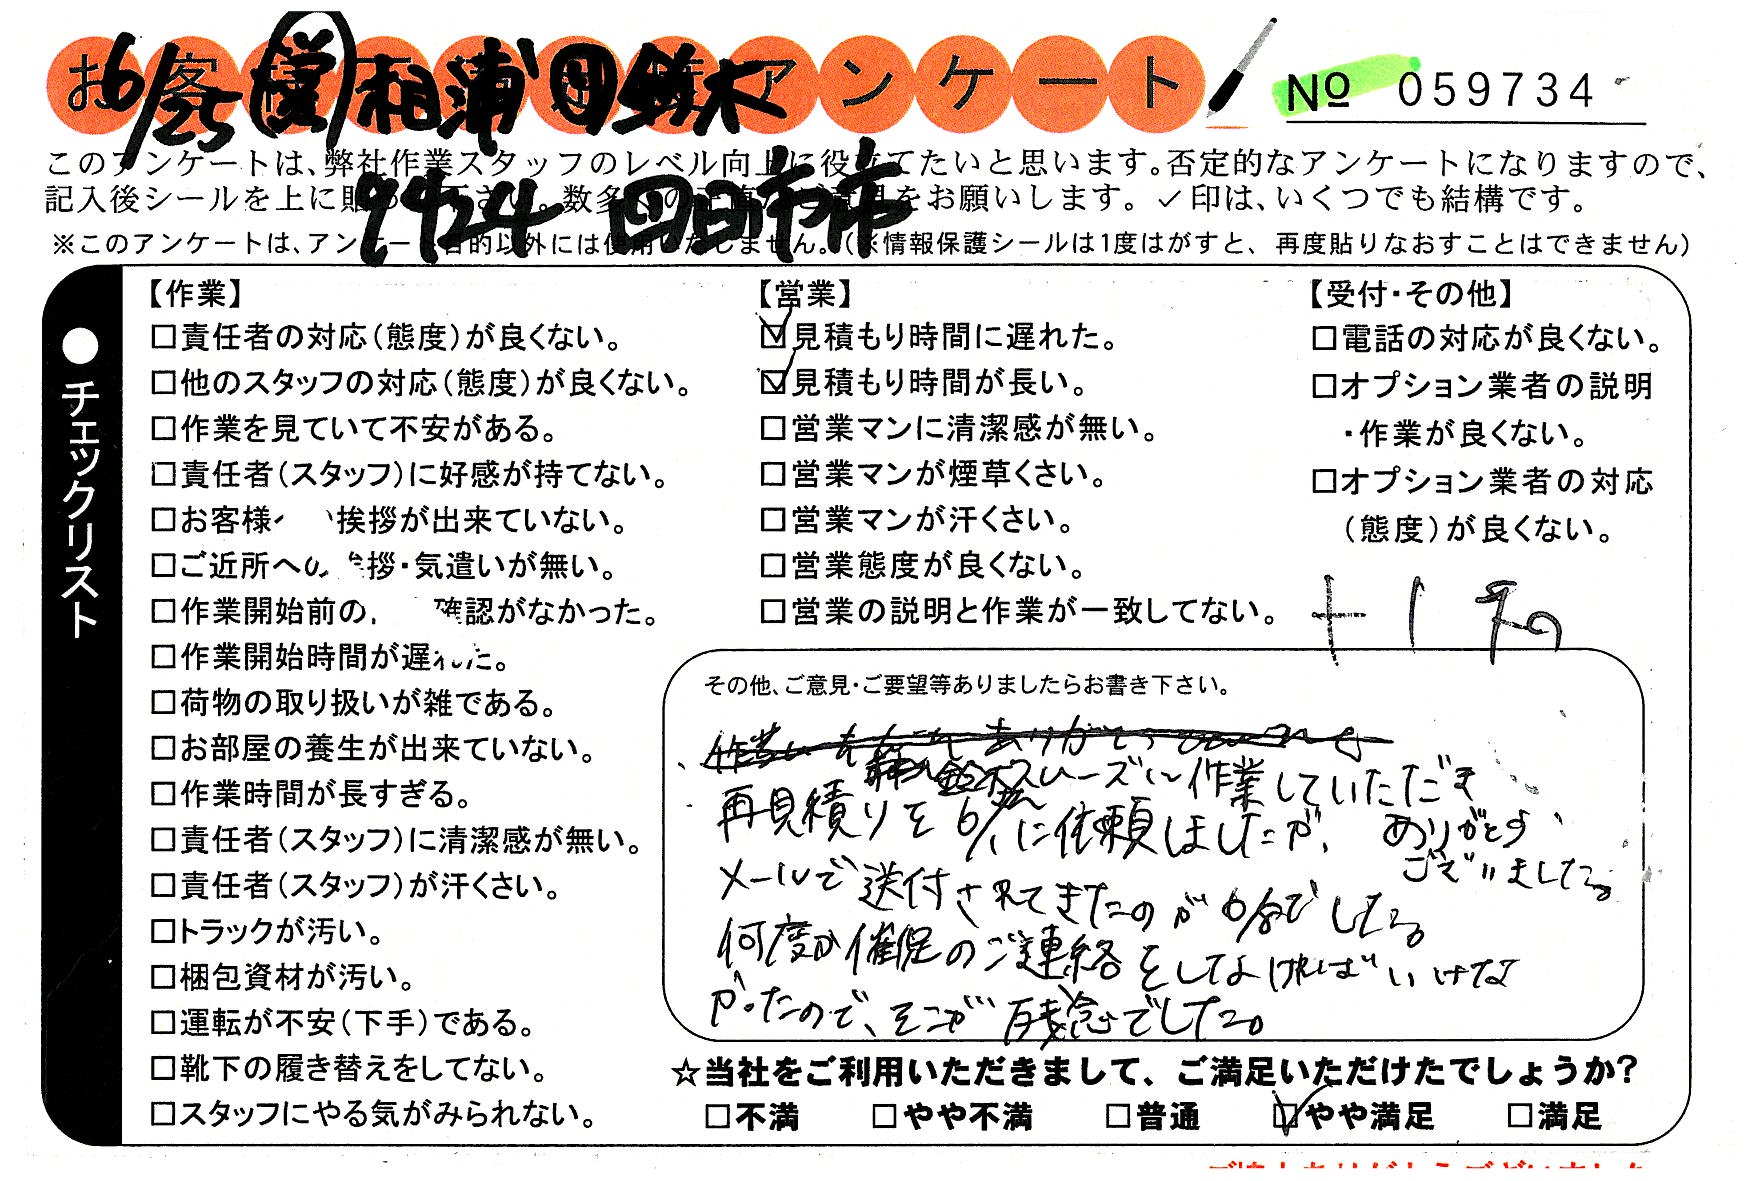 お客様 アンケート
6/25 相浦 鈴木
No 059734
このアンケートは、弊社作業スタッフのレベル向上に役立てたいと思います。否定的なアンケートになりますので、
記入後シールを上に貼 下さい。数多くの ご意見をお願いします。✓印は、いくつでも結構です。
9424 四日市市
※このアンケートは、アンケート目的以外には使用いたしません。(※情報保護シールは1度はがすと、再度貼りなおすことはできません)
●チェックリスト
【作業】
□責任者の対応(態度)が良くない。
□他のスタッフの対応(態度)が良くない。
□作業を見ていて不安がある。
□責任者(スタッフ)に好感が持てない。
□お客様 挨拶が出来ていない。
□ご近所への 挨拶・気遣いが無い。
□作業開始前の 確認がなかった。
□作業開始時間が遅れた。
□荷物の取り扱いが雑である。
□お部屋の養生が出来ていない。
□作業時間が長すぎる。
□責任者(スタッフ)に清潔感が無い。
□責任者(スタッフ)が汗くさい。
□トラックが汚い。
□梱包資材が汚い。
□運転が不安(下手)である。
□靴下の履き替えをしてない。
□スタッフにやる気がみられない。
【営業】
☑見積もり時間に遅れた。
☑見積もり時間が長い。
□営業マンに清潔感が無い。
□営業マンが煙草くさい。
□営業マンが汗くさい。
□営業態度が良くない。
□営業の説明と作業が一致してない。
【受付・その他】
□電話の対応が良くない。
□オプション業者の説明
・作業が良くない。
□オプション業者の対応
(態度)が良くない。
その他、ご意見・ご要望等ありましたらお書き下さい。
スムーズに作業していただき
ありがとう
ございました。
再見積りを6/1に依頼しましたが、
メールで送付されてきたのが 6/8でした。
何度か催促のご連絡をしなければいけな
かったので、そこが残念でした。
☆当社をご利用いただきまして、ご満足いただけたでしょうか?
□不満 □やや不満 □普通 ☑やや満足 □満足